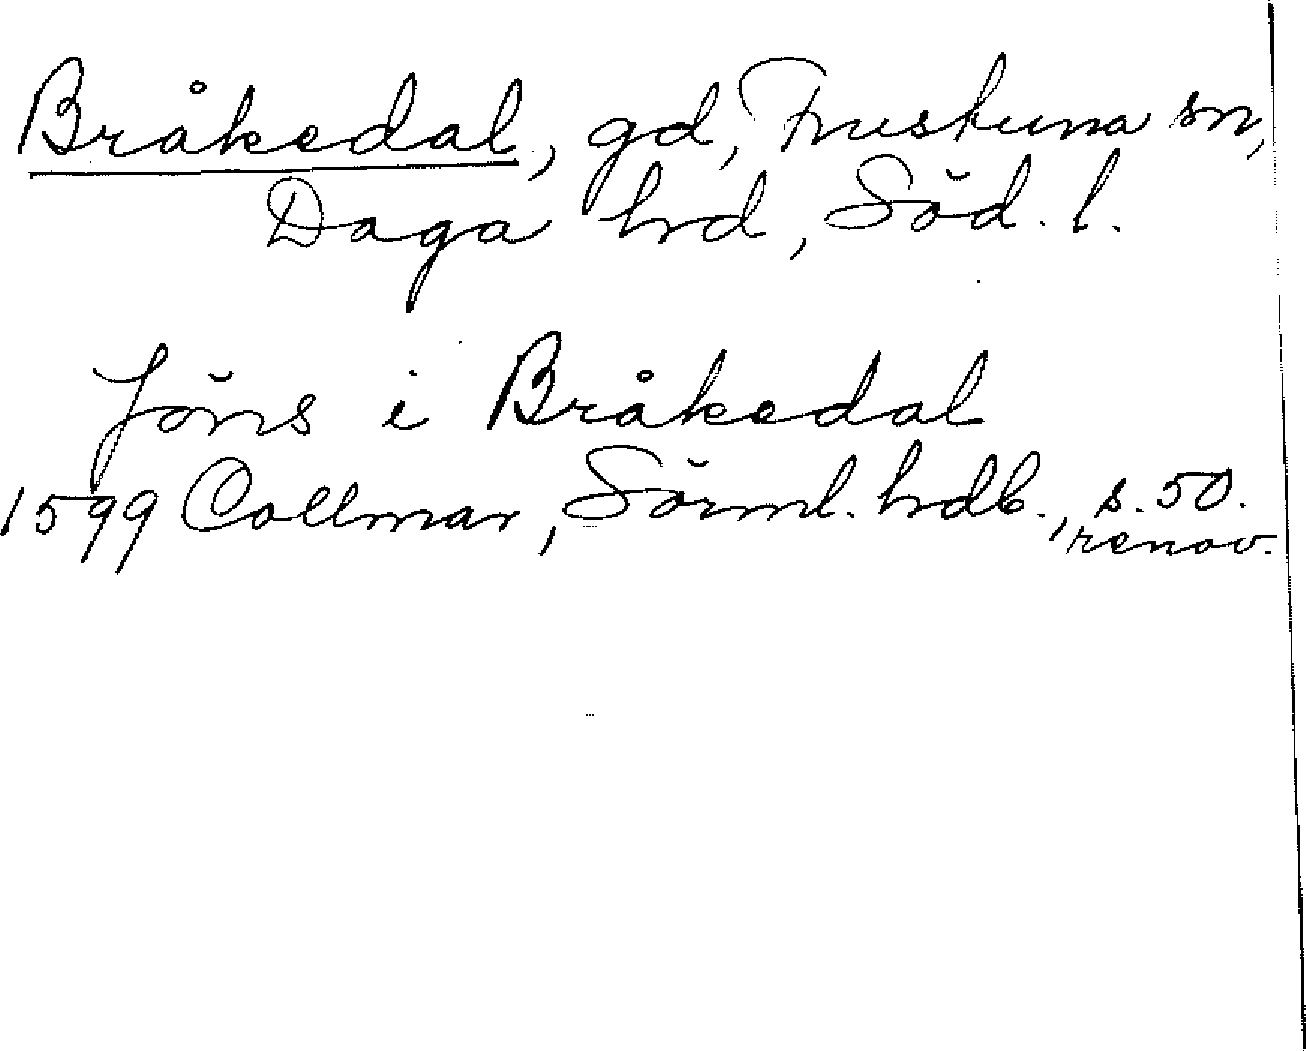 Bråkedal, gd, Frustuna sn,
Daga hrd, Söd. l.
Jöns i Bråkedal
1599 Collmar, Sörml. hrdb., s. 50.
renov.